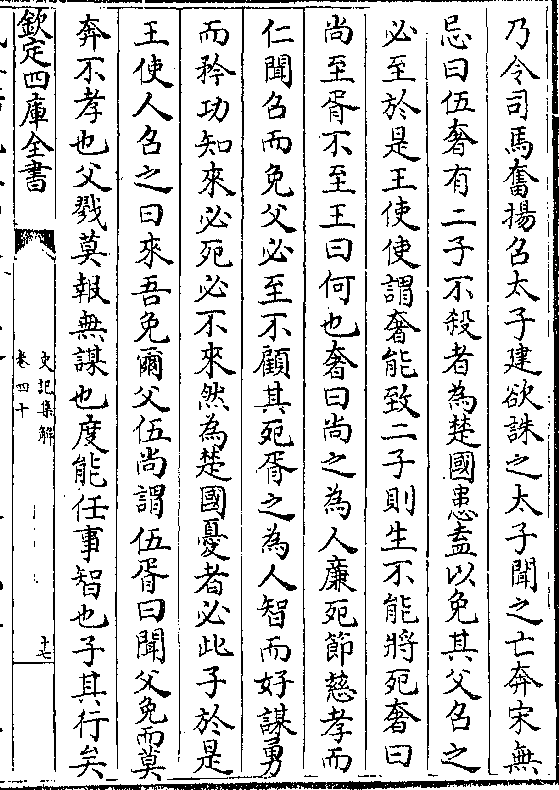 乃令司馬奮揚召太子建欲誅之太子聞之亡奔宋無
忌曰伍奢有二子不殺者為楚國患盍以免其父召之
必至於是王使使謂奢能致二子則生不能將死奢曰
尚至胥不至王曰何也奢曰尚之為人廉死節慈孝而
仁聞召而免父必至不顧其死胥之為人智而好謀勇
而矜功知來必死必不來然為楚國憂者必此子於是
王使人召之曰來吾免爾父伍尚謂伍胥曰聞父免而莫
奔不孝也父戮莫報無謀也度能任事智也子其行矣
欽定四庫全書
史記集解
卷四十
十七